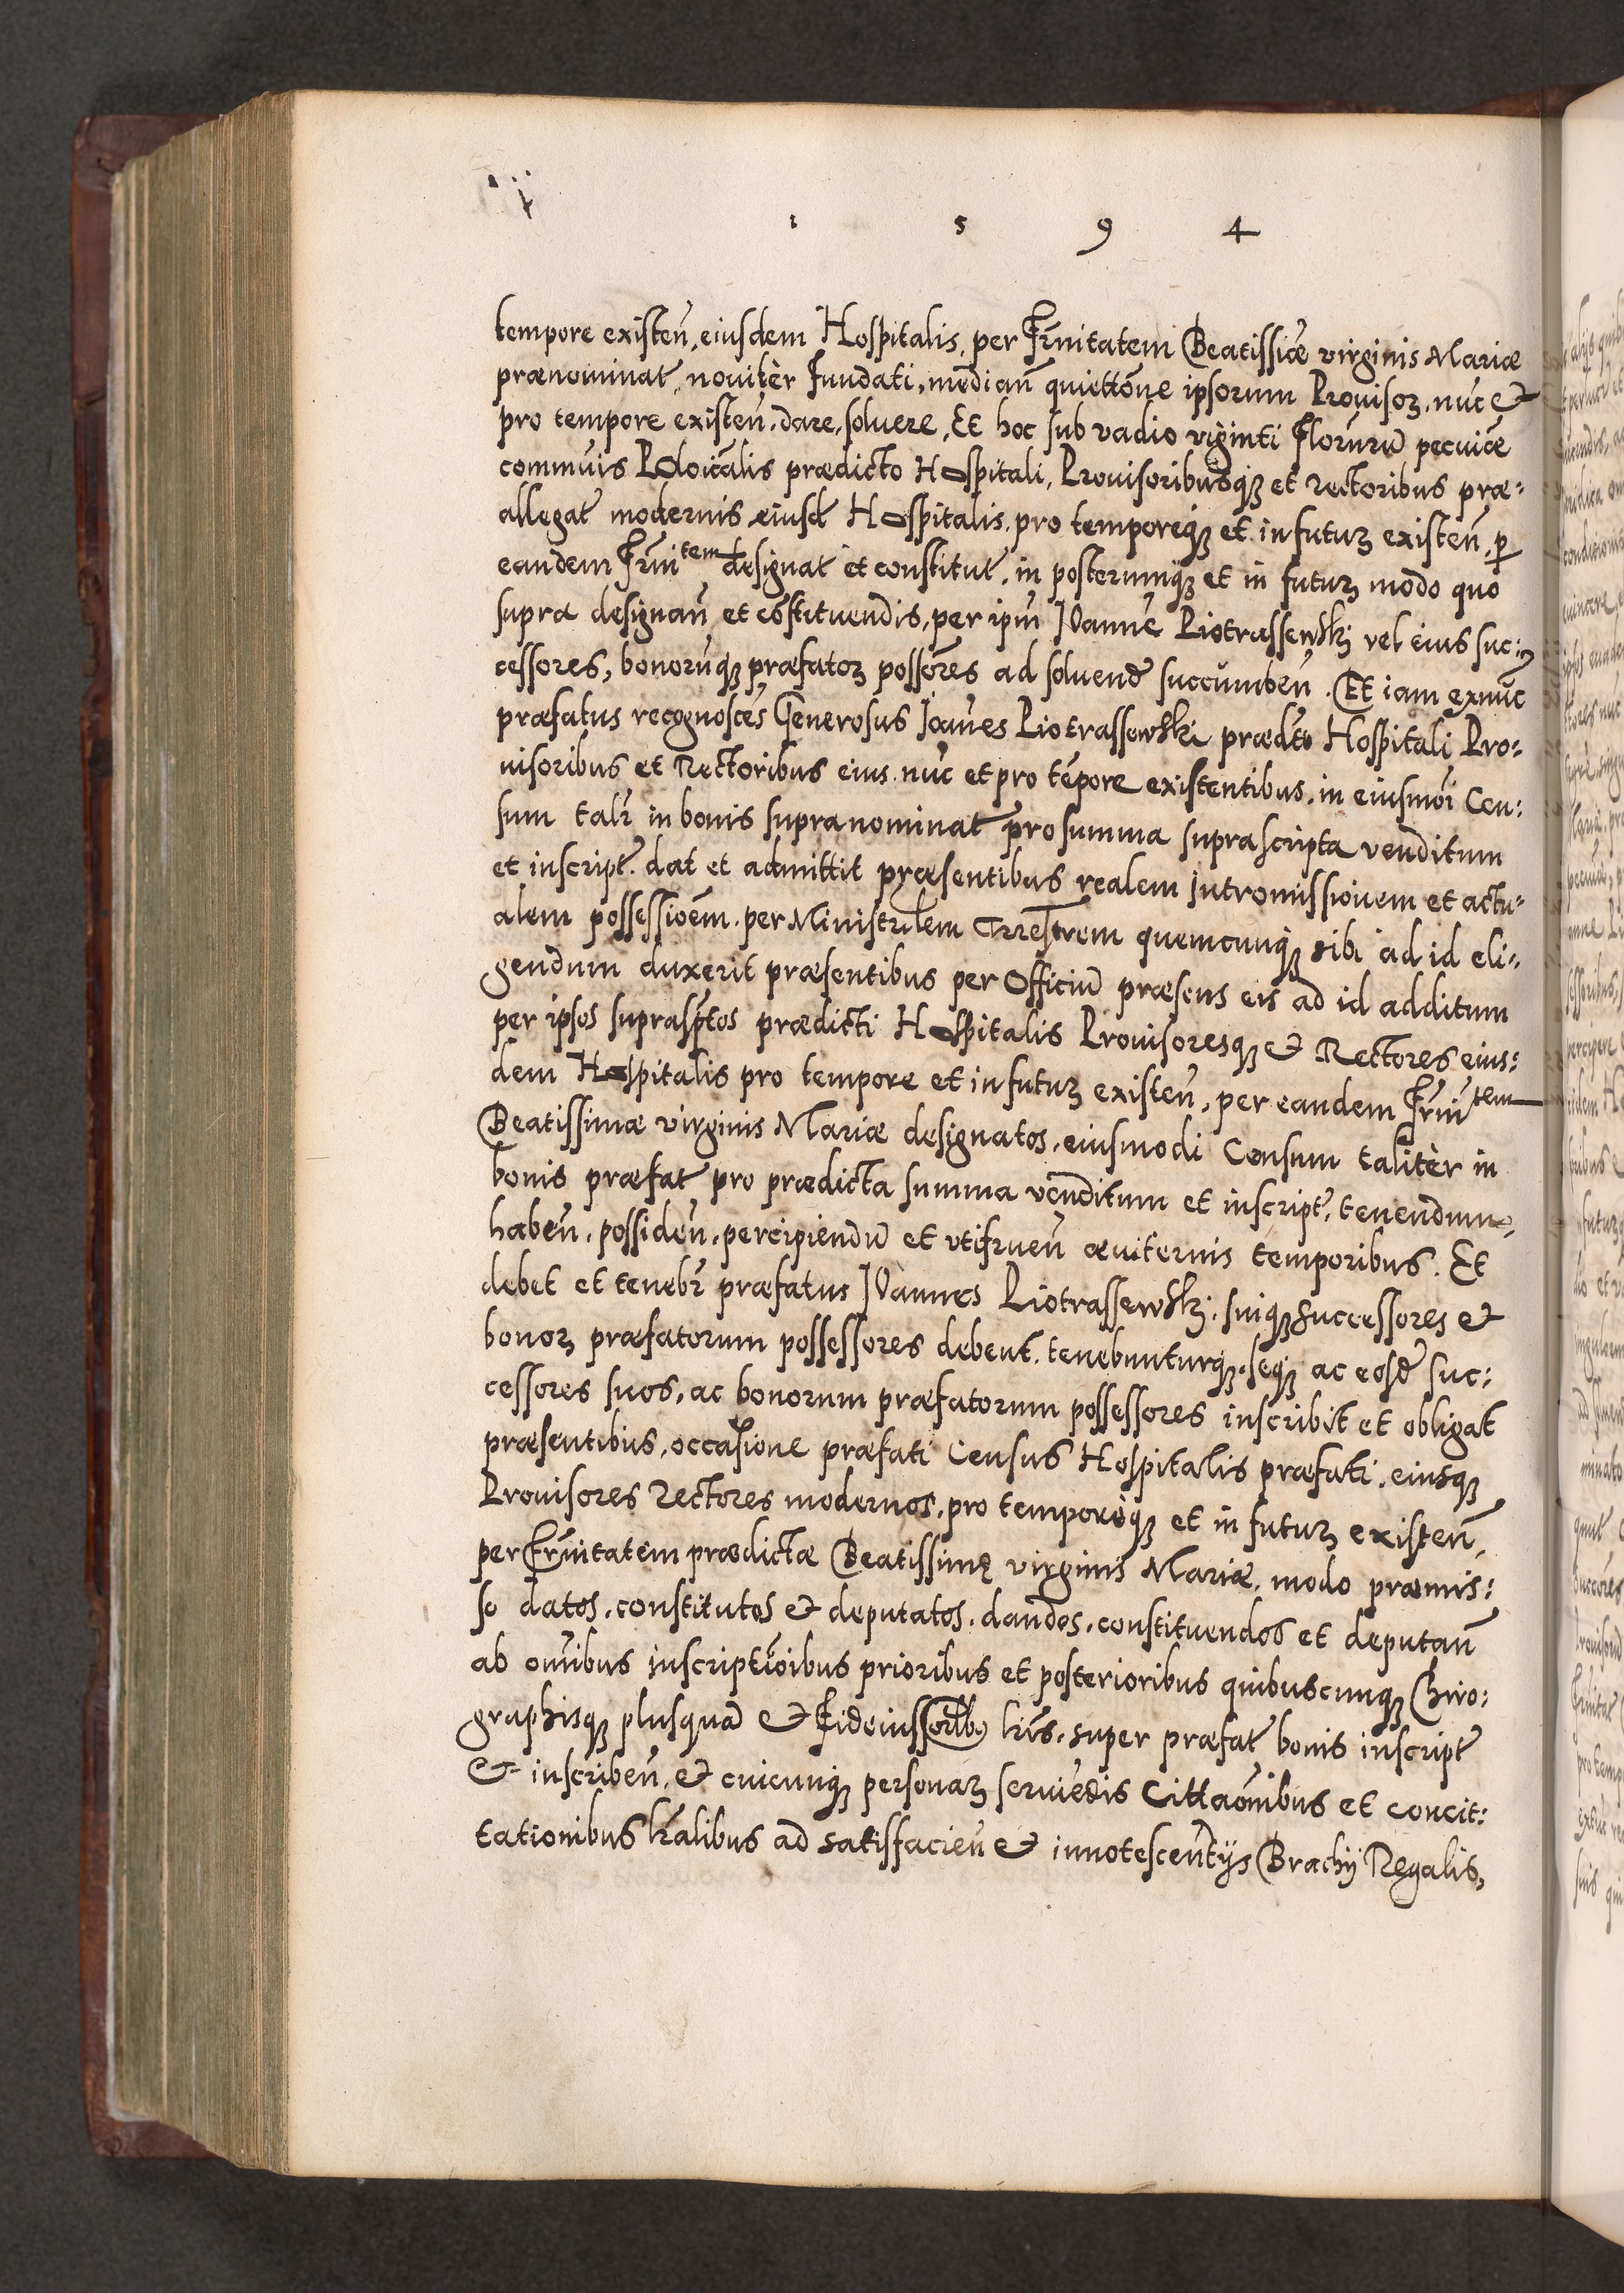 1 5 9 4
tempore existen̄, eiusdem Hospitalis, per Fr̄nitatem Beatissiæ virginis Mariæ
prænominat, nouitèr Fundati, median̄ quiettōne ipsorum Prouisoꝝ. nuc et
pro tempore existen̄. dare, soluere, Et hoc sub vadio viginti Florūrū pecuiæ
commuis Polōicālis prædicto Hospitali, Prouisoribusqꝫ et rectoribus præ⸗
allegat modernis eiusd Hospitalis. pro temporeqꝫ et in futuꝝ existen̄. ꝑ
eandem Fr̄nitem designat et constitut, in posterumqꝫ et in futuꝝ modo quo
supra designan̄ et cōstituendis, per ipm̄ Ioannē Piotrassewski vel eius suc⸗
cessores, bonorūqꝫ præfatoꝝ possōres ad soluend succumben̄. Et iam exnūc
præfatus recognoscēs Generosus Ioānes Piotrassewski prædto Hospitali Pro⸗
uisoribus et Rectoribus eius. nūc et pro tēpore existentibus. in eiusmōi Cen⸗
sum talr̄ in bonis supranominat pro summa suprascripta venditum
et inscript. dat et admittit præsentibus realem Intromissionem et actu⸗
alem possessioēm. per Ministrlem Trrestrem quemcunqꝫ sibi ad id eli⸗
gendum duxerit præsentibus per Officiū præsens eis ad id additum
per ipsos suprasptos prædicti Hospitalis Prouisoresqꝫ et Rectores eius⸗
dem Hospitalis pro tempore et in futuꝝ existen̄, per eandem Fr̄nitem
Beatissimæ virginis Mariæ designatos. eiusmodi Censum talitèr in
bonis præfat pro prædicta summa venditum et inscript, tenendum,
haben̄. possiden̄. percipiendū et vtifruen̄ æuiternis temporibus. Et
debet et tenebr̄ præfatus Ioannes Piotrassewski. suiqꝫ successores et
bonoꝝ præfatorum possessores debent. tenebunturqꝫ. seqꝫ ac eosd suc⸗
cessores suos, ac bonorum præfatorum possessores inscribit et obligat
præsentibus, occasione præfati Census Hospitalis præfati, eiusqꝫ
Prouisores Rectores modernos, pro temporèqꝫ et in futuꝝ existen̄,
per Fr̄nitatem prædictæ Beatissimę virginis Mariæ. modo præmis⸗
so datos. constitutos et deputatos. dandos. constituendos et deputan̄
ab oīnibus Inscriptiōibus prioribus et posterioribus quibuscunqꝫ Chiro⸗
graphisqꝫ plusquā et Fideiussorÿbꝫ lrīs. super præfat bonis inscript
et inscriben̄. et cuicunqꝫ personaꝝ seruiēdis Cittaōnibus et concit⸗
tationibus lrālibus ad satisfacien̄ et innotescentÿs Brachÿ Regalis,